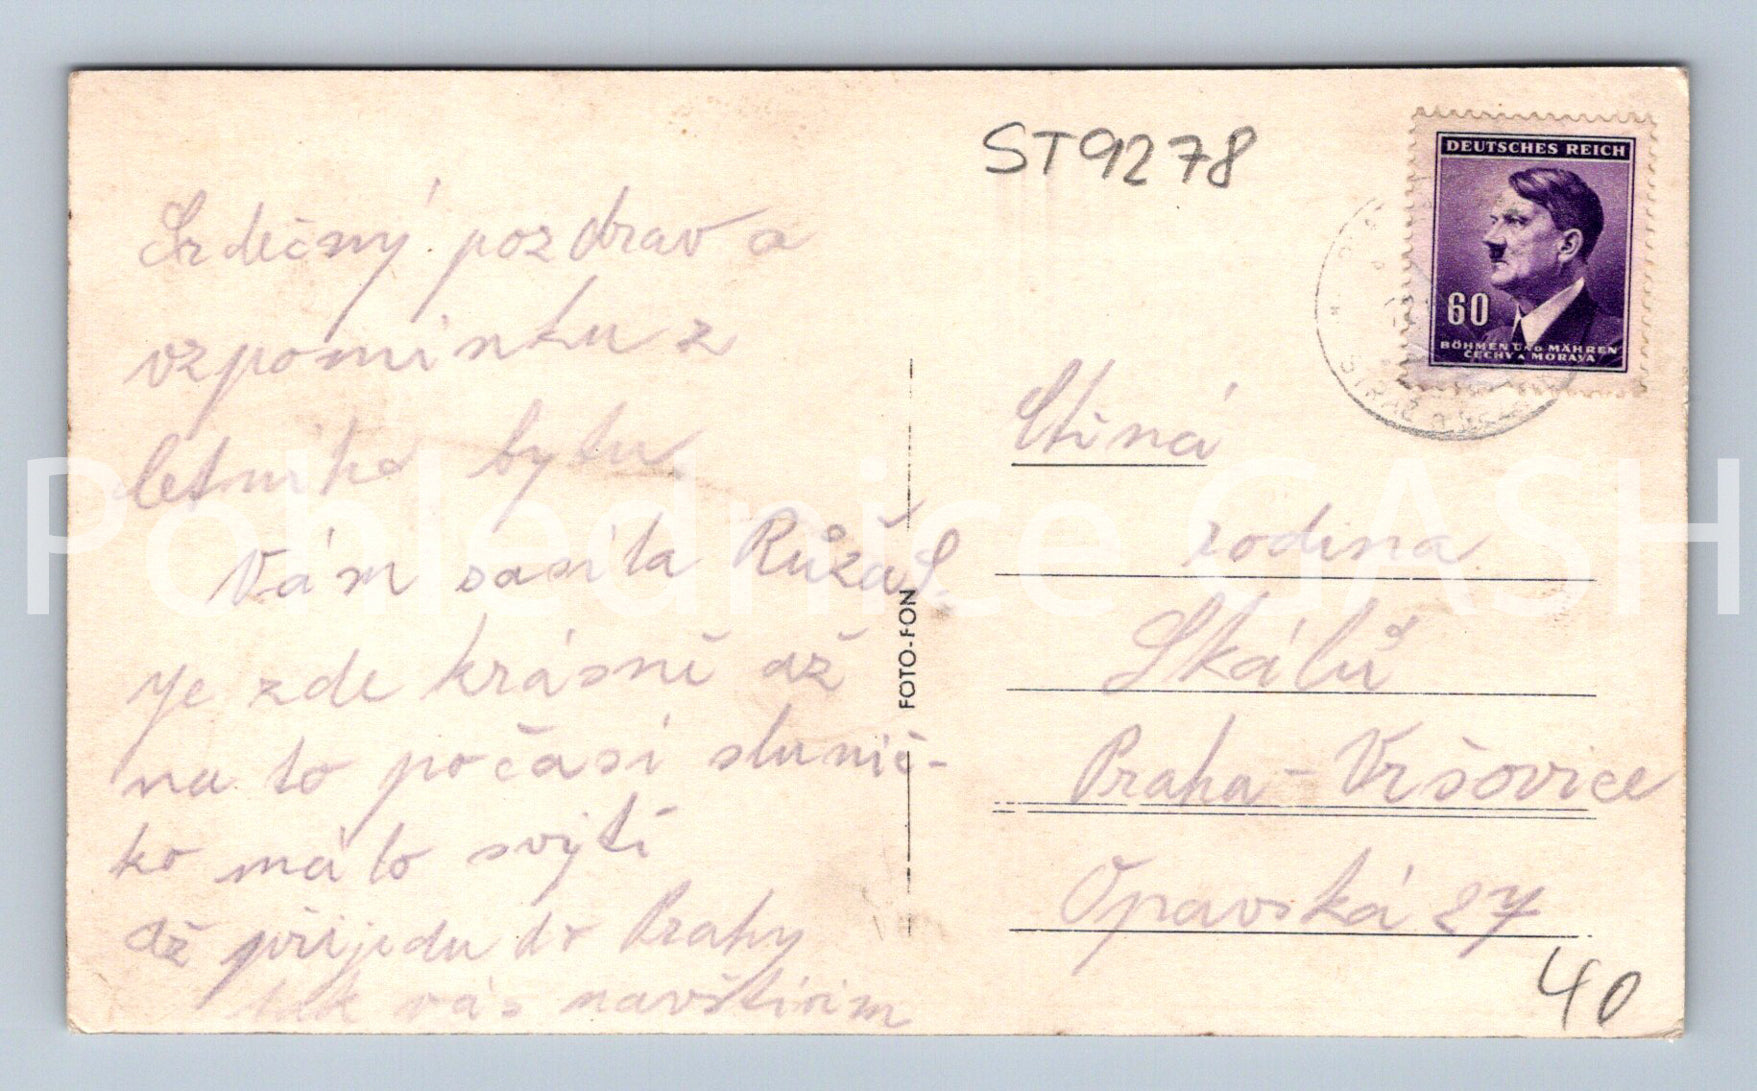 ST9278
DEUTSCHES REICH
60
BÖHMEN UND MÄHREN
ČECHY A MORAVA
Srdečný pozdrav a
vzpomínku z
letního bytu.
Vám zasílá Růža S.
Je zde krásně až
na to počasí slunič-
ko málo svýtí
Až přijedu do Prahy
tak vás navštívím
FOTO-FON
Ctěná
rodina
Skálů
Praha - Vršovice
Opavská 27
40
Pohlednice GASH